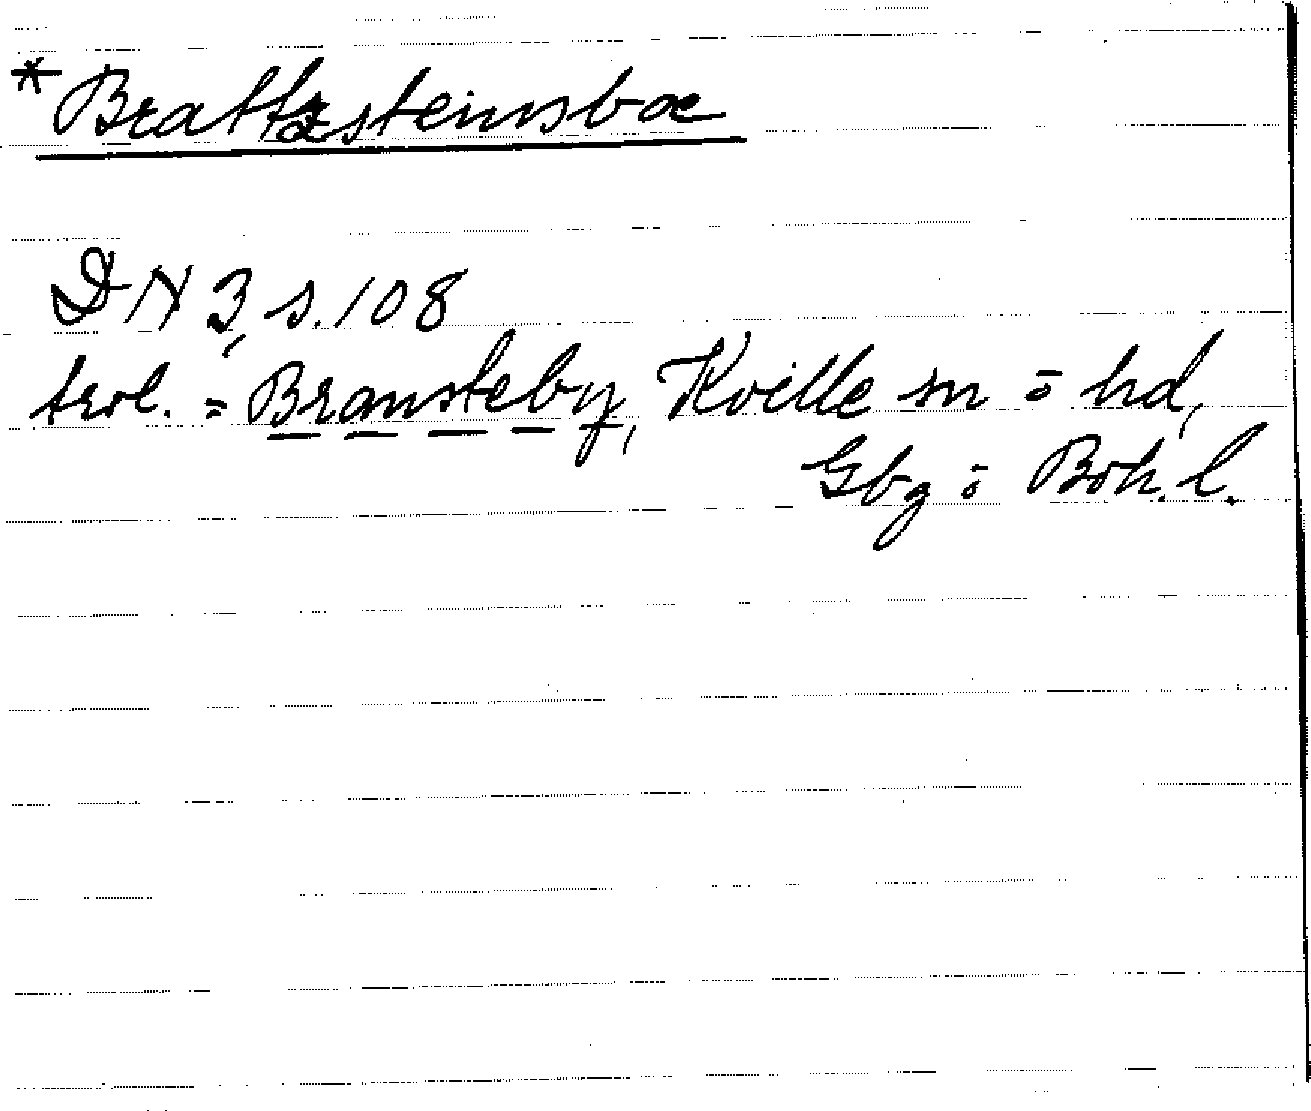 *Brattzsteinsbœ
DN 3, s. 108
trol. = Bransteby, Kville sn o hd,
Gbg o Boh. l.